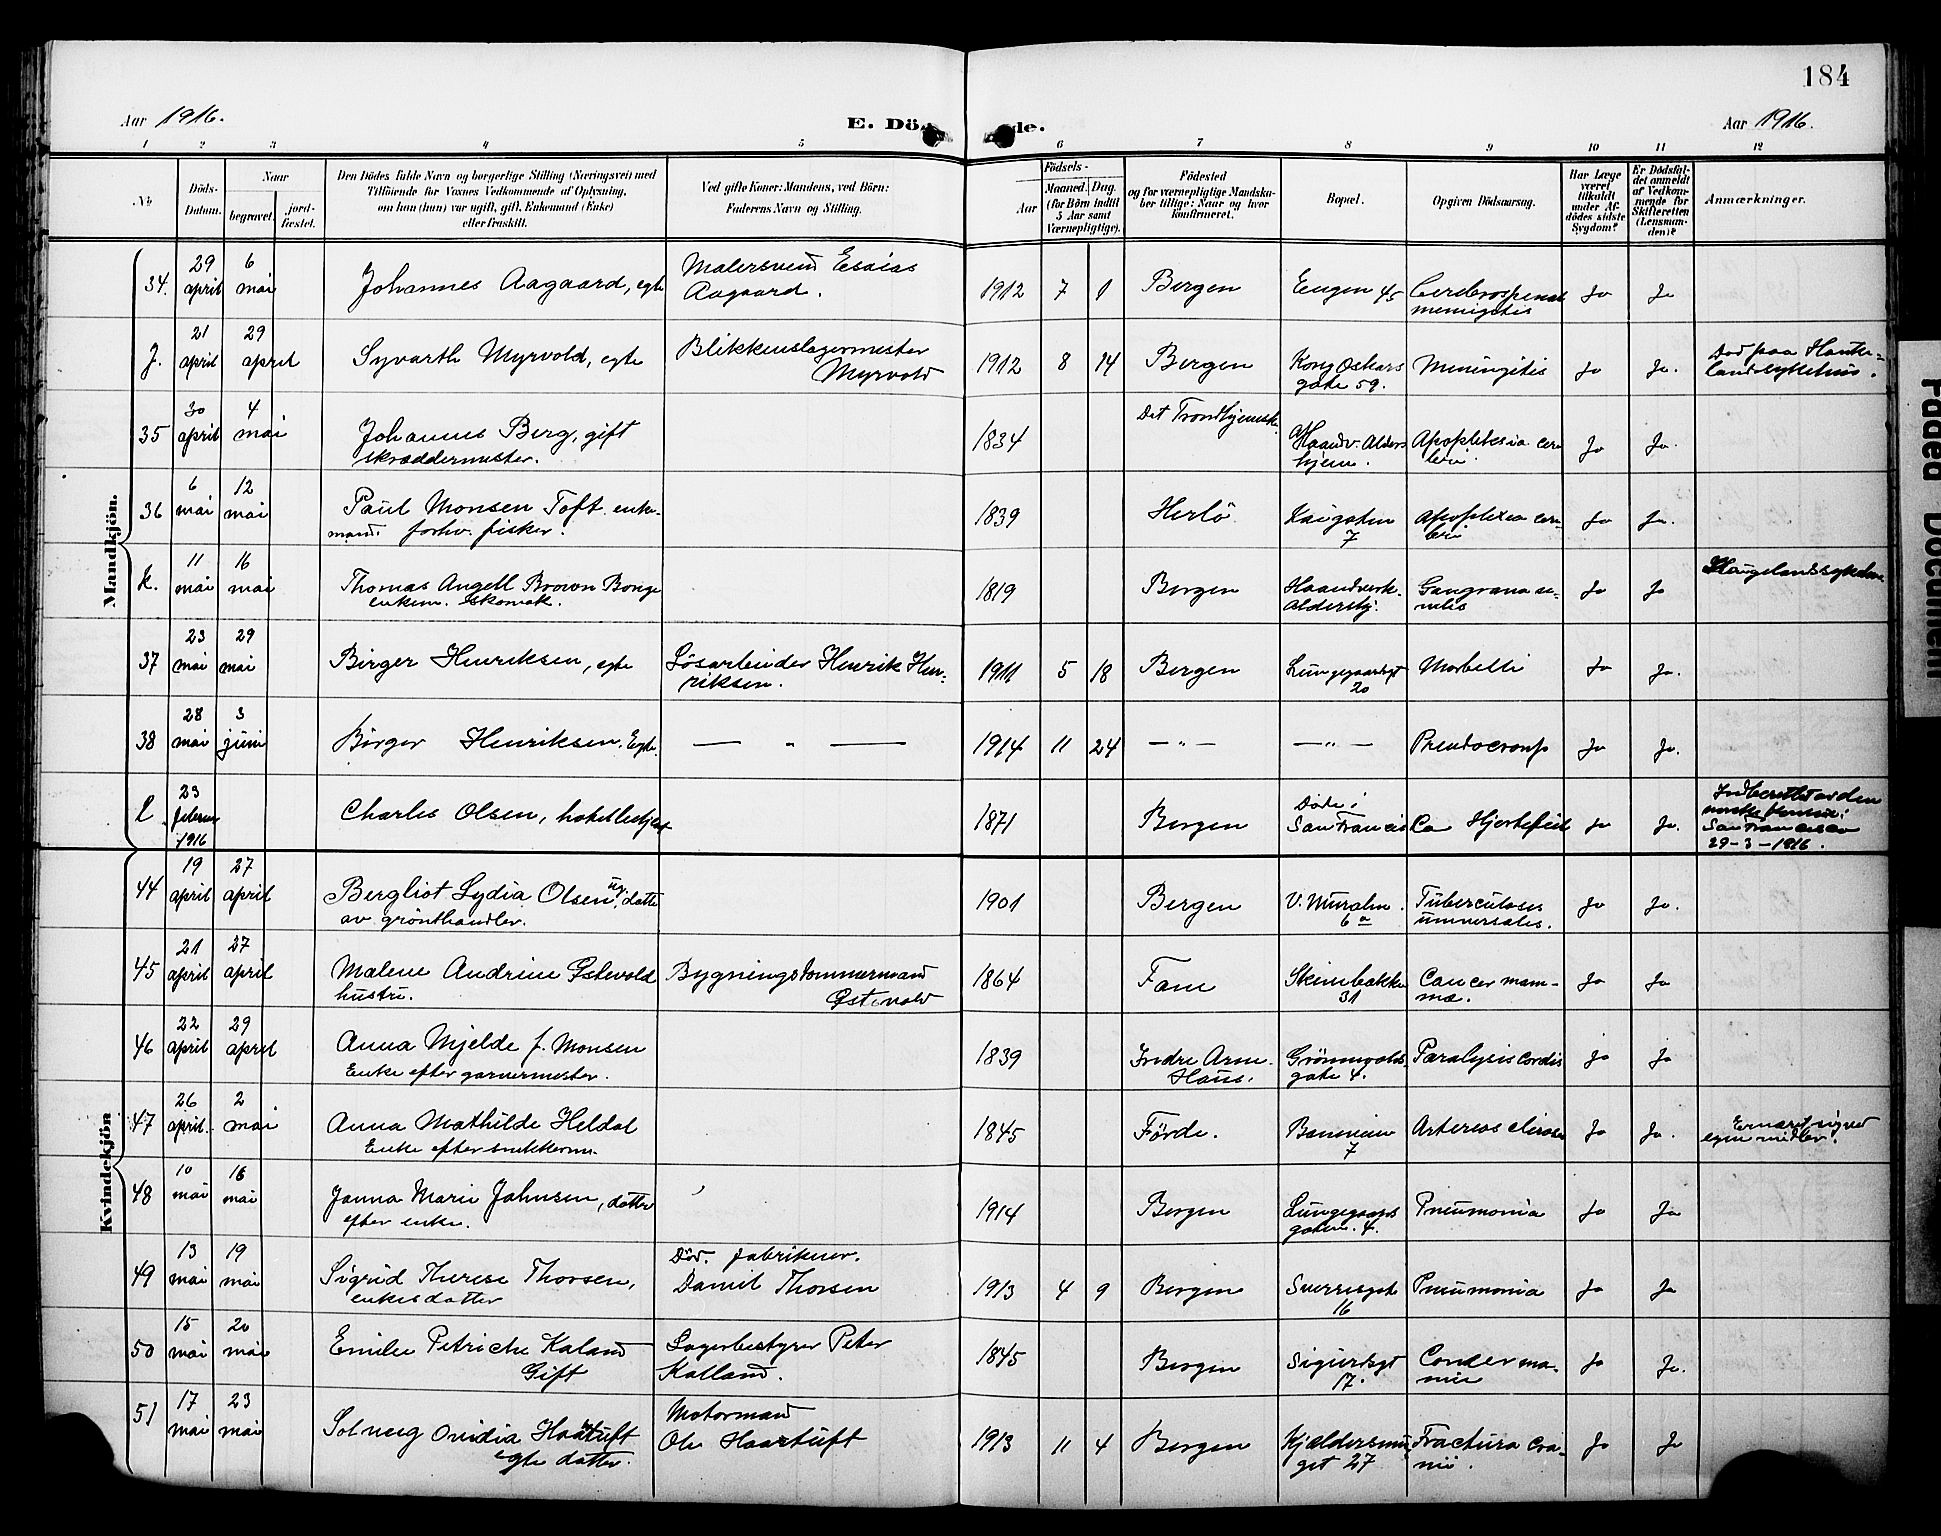 184
Aar 1916.
E. Dö de.
Aar 1916.
1 2 3 4 5 6 7 8 9 10 11 12
No
Döds-Datum.
Naar
begravet.
jord-fæstet.
Den Dödes fulde Navn og borgerlige Stilling (Næringsvei) med
Tilföiende for Voxnes Vedkommende af Oplysning,
om han (hun) var ugift, gift, Enkemand (Enke)
eller fraskilt.
Ved gifte Koner: Mandens, ved Börn:
Faderens Navn og Stilling.
Födsels-
Aar
Maaned. Dag.
(for Börn indtil
5 Aar samt
Værnepligtige).
Födested
og for værnepligtige Mandska-
ber tillige: Naar og hvor
konfirmeret.
Bopæl.
Opgiven Dödsaarsag.
Har Læge
været
tilkaldt
under Af-
dödes sidste
Sygdom?
Er Dödsfal-
det anmeldt
af Vedkom-
mende for
Skifteretten
(Lensman-
den)?
Anmærkninger.
Mandkjön.
34. 29 april 6 mai Johannes Aagaard, egte Malersvend Esaias Aagaard. 1912 7 1 Bergen Eugen 45 Cerebrospinal meningitis Ja Ja
J. 21 april 29 april Syvarth Myrvold, egte Blikkenslagermester Myrvold 1912 8 14 Bergen Kong Oskars gate 59. Meningitis Ja Ja. Död paa Hauke-landsykehus.
35 30 april 4 mai Johannes Berg, gift skræddermester. 1834 Det Trondhjemske. Haandv. Alders hjem. Apoplexia cerebri Ja Ja.
36 6 mai 12 mai Paul Monsen Toft enke-mand. forhv. fisker. 1839 Herlö Kaigaten 7 Apoplexia cere-bri Ja Ja.
k. 11 mai 16 mai Thomas Angell Brown Bonge enkem. skomak. 1819 Bergen Haandverk. aldershj. Gangræna se-nilis Ja Ja Haugelandssykehus
37 23 mai 29 mai Birger Henriksen, egte Lösarbeider Henrik Hen-riksen. 1911 5 18 Bergen Lungegaardsgt 20 Morbilli Ja Ja.
38 28 mai 3 juni Börger Henriksen. Egte. — " — 1914 11 24 — " — — " — Pseudocroup Ja Ja.
l. 23 februar 1916 Charles Olsen, hotelbetjent 1871 Bergen Döde i San Francisco Hjertefeil Ja Ja. Indberettet av den norske konsul i San Francisco 29-3-1916.
Kvindekjön
44 19 april 27 april Bergliot Lydia Olsen, ug. datter av grönthandler. 1901 Bergen V. Muralm. 6a Tuberculosis universalis. Ja Ja.
45 21 april 27 april Malene Andrine Østevold hustru. Bygningstömmermand Østevold 1864 Fane Skivebakken 31 Cancer mam-mæ. Ja Ja
46 22 april 29 april Anna Mjelde f. Monsen Enke efter garvermester. 1839 Indre Arne. Haus. Grönnevolds gate 4. Paralysis cordis Ja Ja
47 26 april. 2 mai Anna Mathilde Heldal Enke efter snekkerm. 1845 Förde. 7 Ja Ja. Ernæret sig ved egne midler.
48 10 mai 16 mai Janna Marie Johnsen, datter efter enke. 1914 Bergen Lungegaards gaten. 4. Pneumonia Ja Ja
49 13 mai 19 mai Sigrid Therese Thorsen, enkes datter Död. fabrikeier. Daniel Thorsen 1913 4 9 Bergen Sverresgt 16 Pneumonia Ja Ja
50 15 mai 20 mai Emilie Petriche Kaland Gift Lagerbestyrer Peter Kalland. 1845 Bergen Sigurdsgt 17. Ja Ja.
51 17 mai 23 mai Solveig Ovidia Haatuft egte datter. Motormand Ole Haartuft 1913 11 4 Bergen Kjældersmu get 27 Fractura cra-nii. Ja Ja
Faded Document